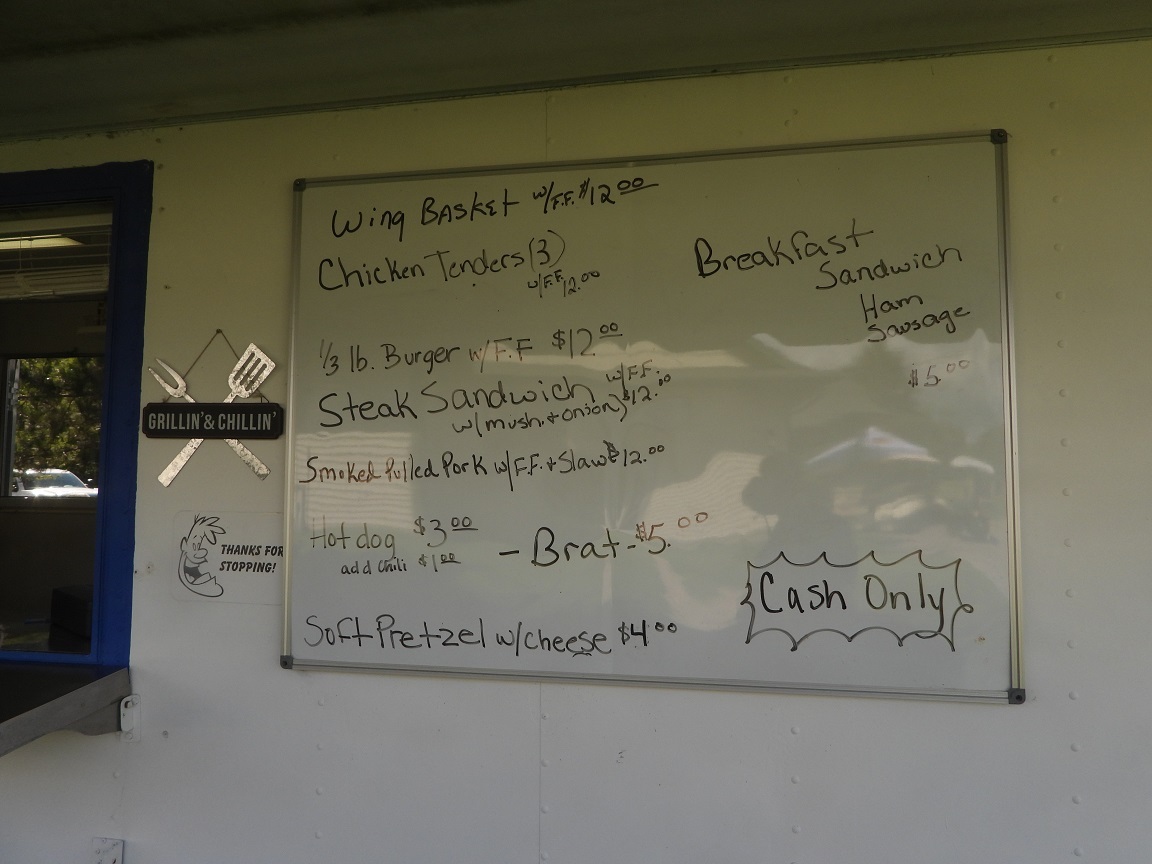 Wing Basket w/F.F. $12.00
Chicken Tenders (3)
w/F.F. 12.00
1/3 lb. Burger w/F.F $12.00
Steak Sandwich w/F.F.
w/(mush. + onion) $12.00
Smoked Pulled Pork w/F.F. + Slaw $12.00
Hot dog $3.00
add Chili $1.00
- Brat - $5.00
Soft Pretzel w/cheese $4.00
Breakfast
Sandwich
Ham
Sausage
$5.00
Cash Only
GRILLIN' & CHILLIN'
THANKS FOR
STOPPING!